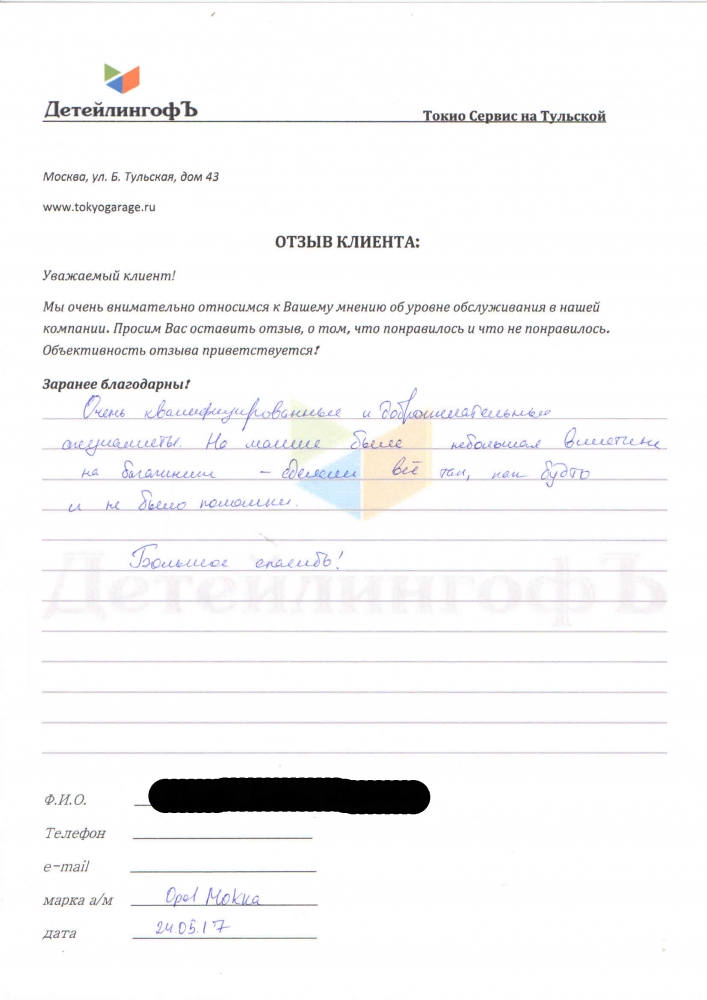 ДетейлингофЪ
Токио Сервис на Тульской
Москва, ул. Б. Тульская, дом 43
www.tokyogarage.ru
ОТЗЫВ КЛИЕНТА:
Уважаемый клиент!
Мы очень внимательно относимся к Вашему мнению об уровне обслуживания в нашей
компании. Просим Вас оставить отзыв, о том, что понравилось и что не понравилось.
Объективность отзыва приветствуется!
Заранее благодарны!
Очень квалифицированные и доброжелательные
специалисты. На машине была небольшая вмятина
на багажнике – сделали всё так, как будто
и не было поломки.
Большое спасибо!
ДетейлингофЪ
Ф.И.О.
Телефон
e-mail
марка а/м Opel Мокка
дата 24.05.17